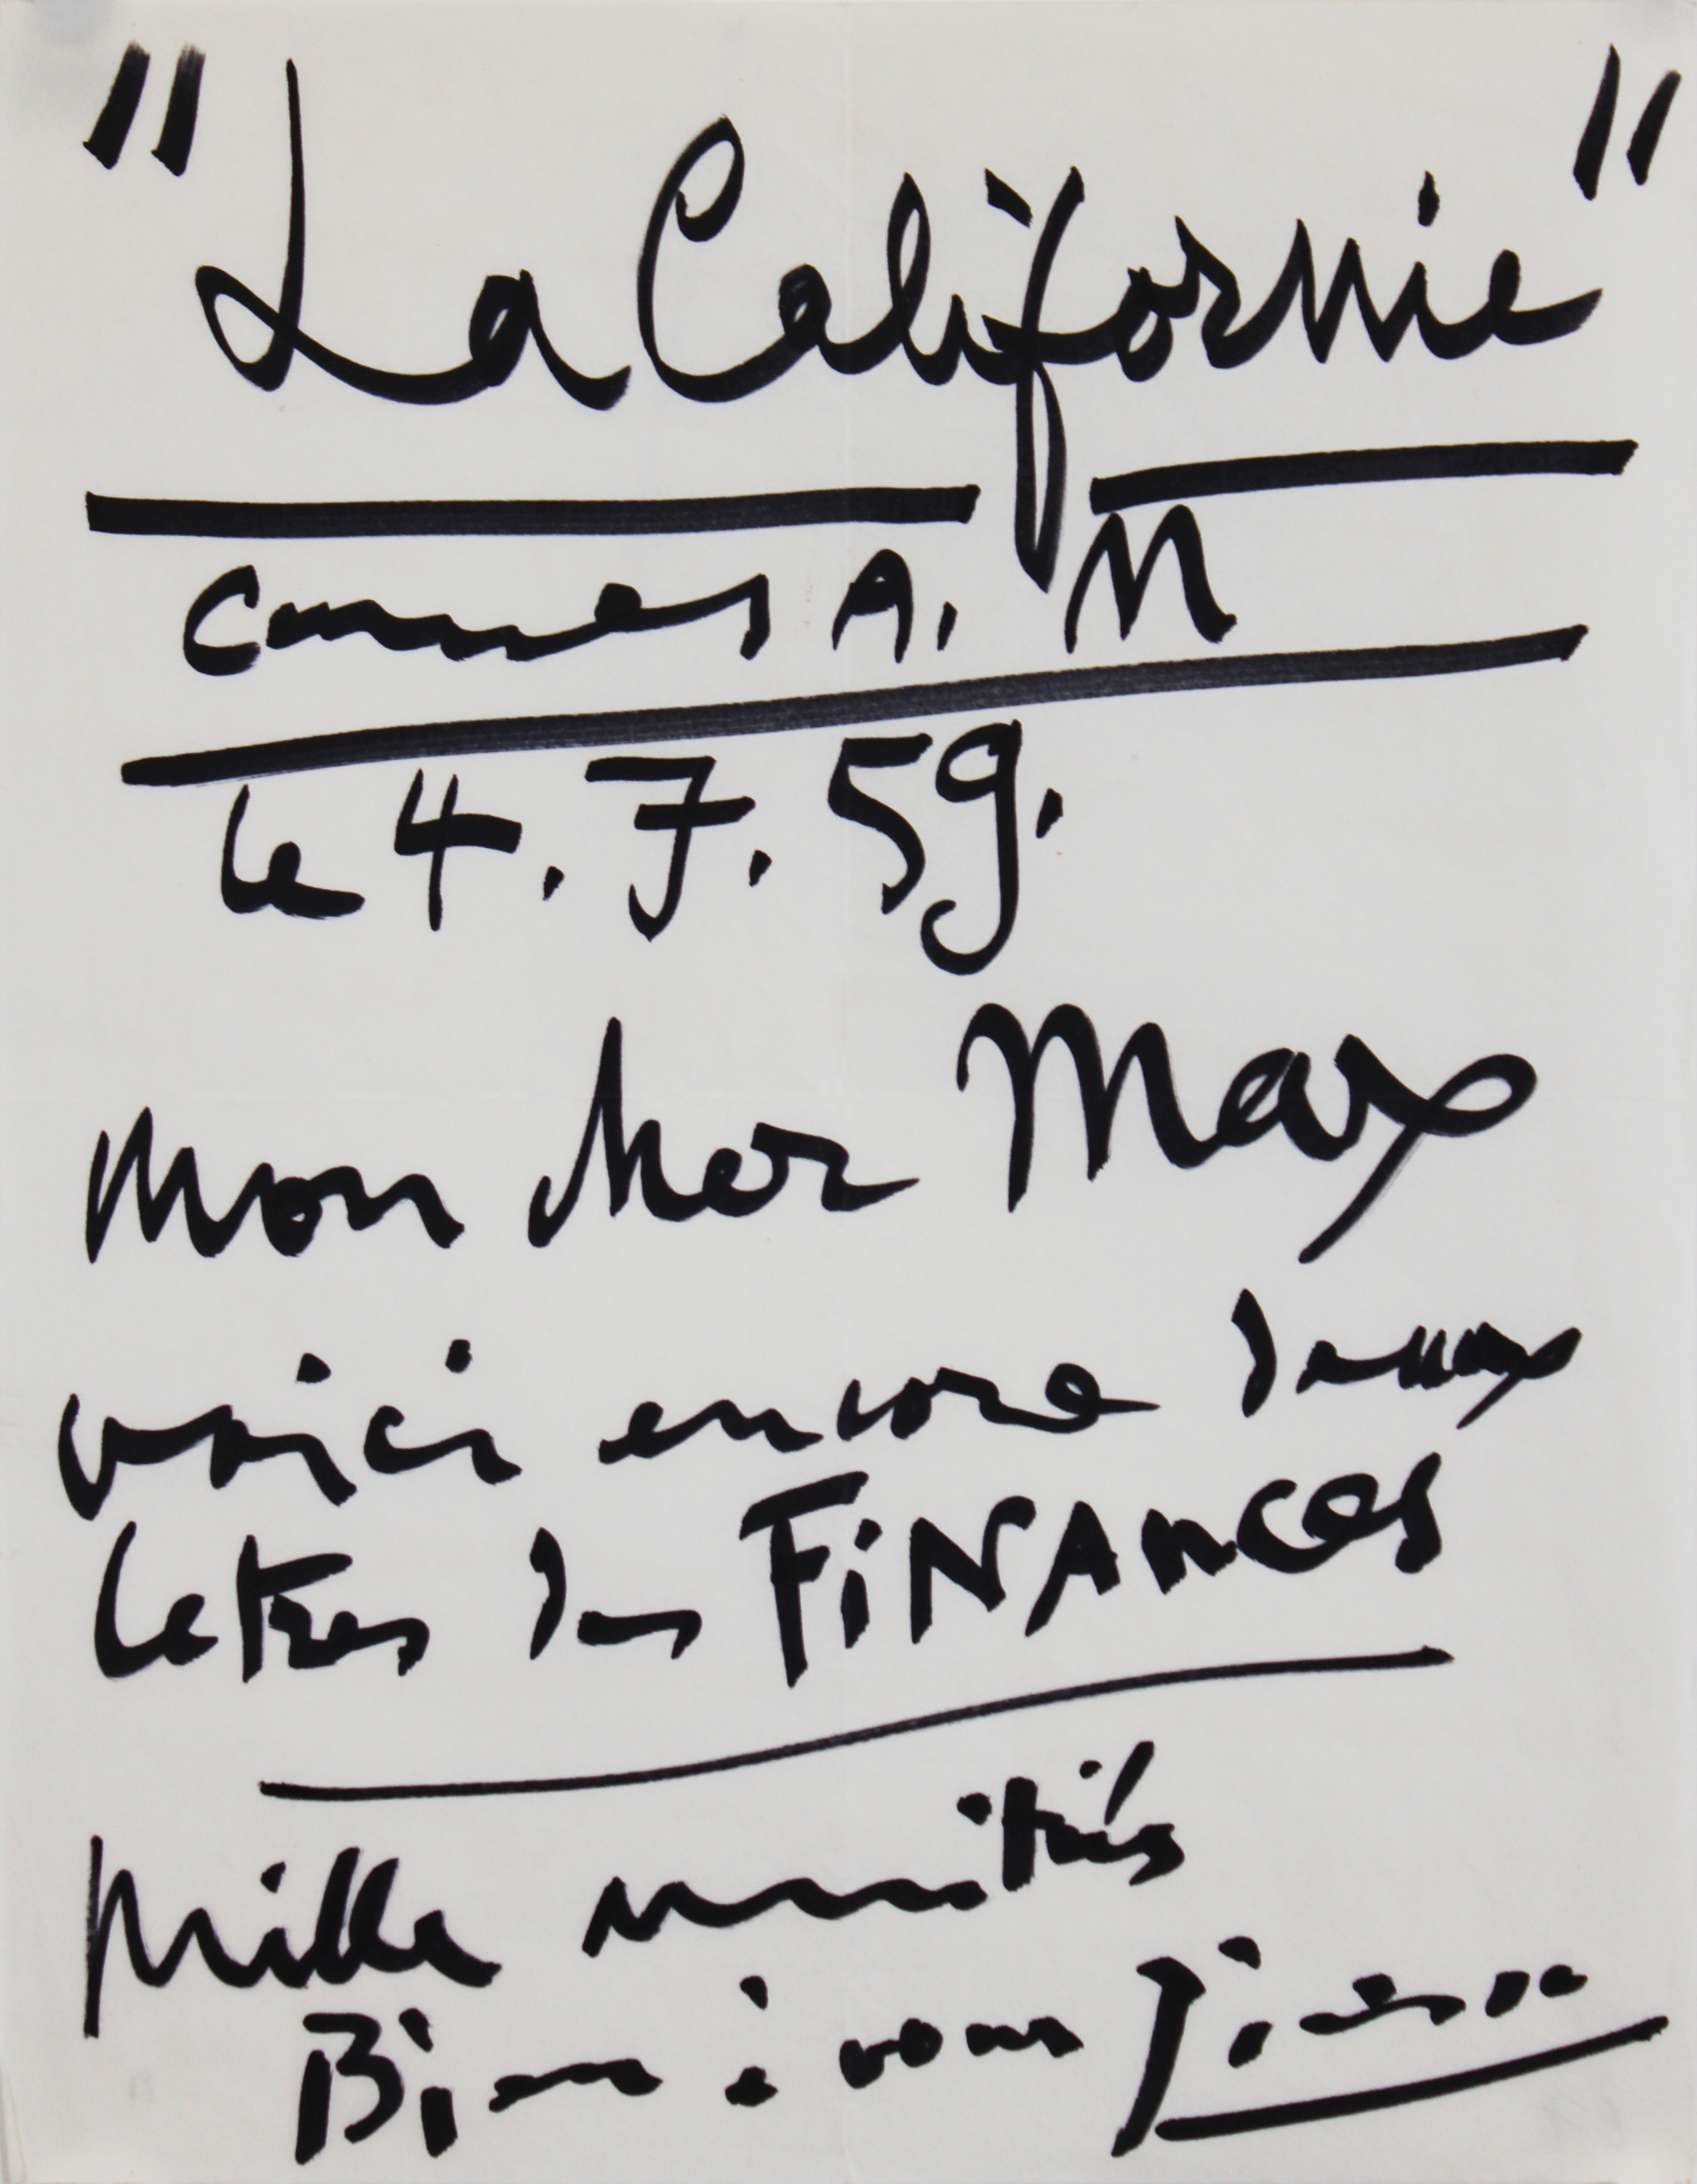 "La Californie"
Cannes A. M
le 4.7.59.
Mon cher Max
voici encore deux
letres des FiNANces
Mille amitiés
Bien à vous Picasso